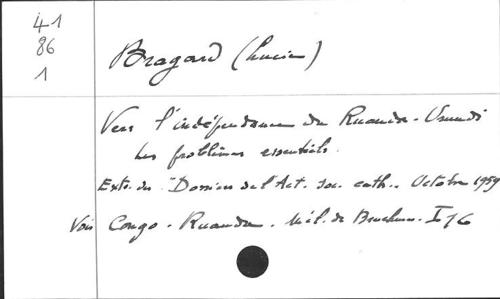 41
86
1
Bragard (Lucien)
Vers l'indépendance du Ruanda-Urundi
Les problèmes essentiels.
Extr. du "Dossiers de l'Act. soc. cath.. Octobre 1959
Voir Congo - Ruanda. Mél. de Brochures - I 76